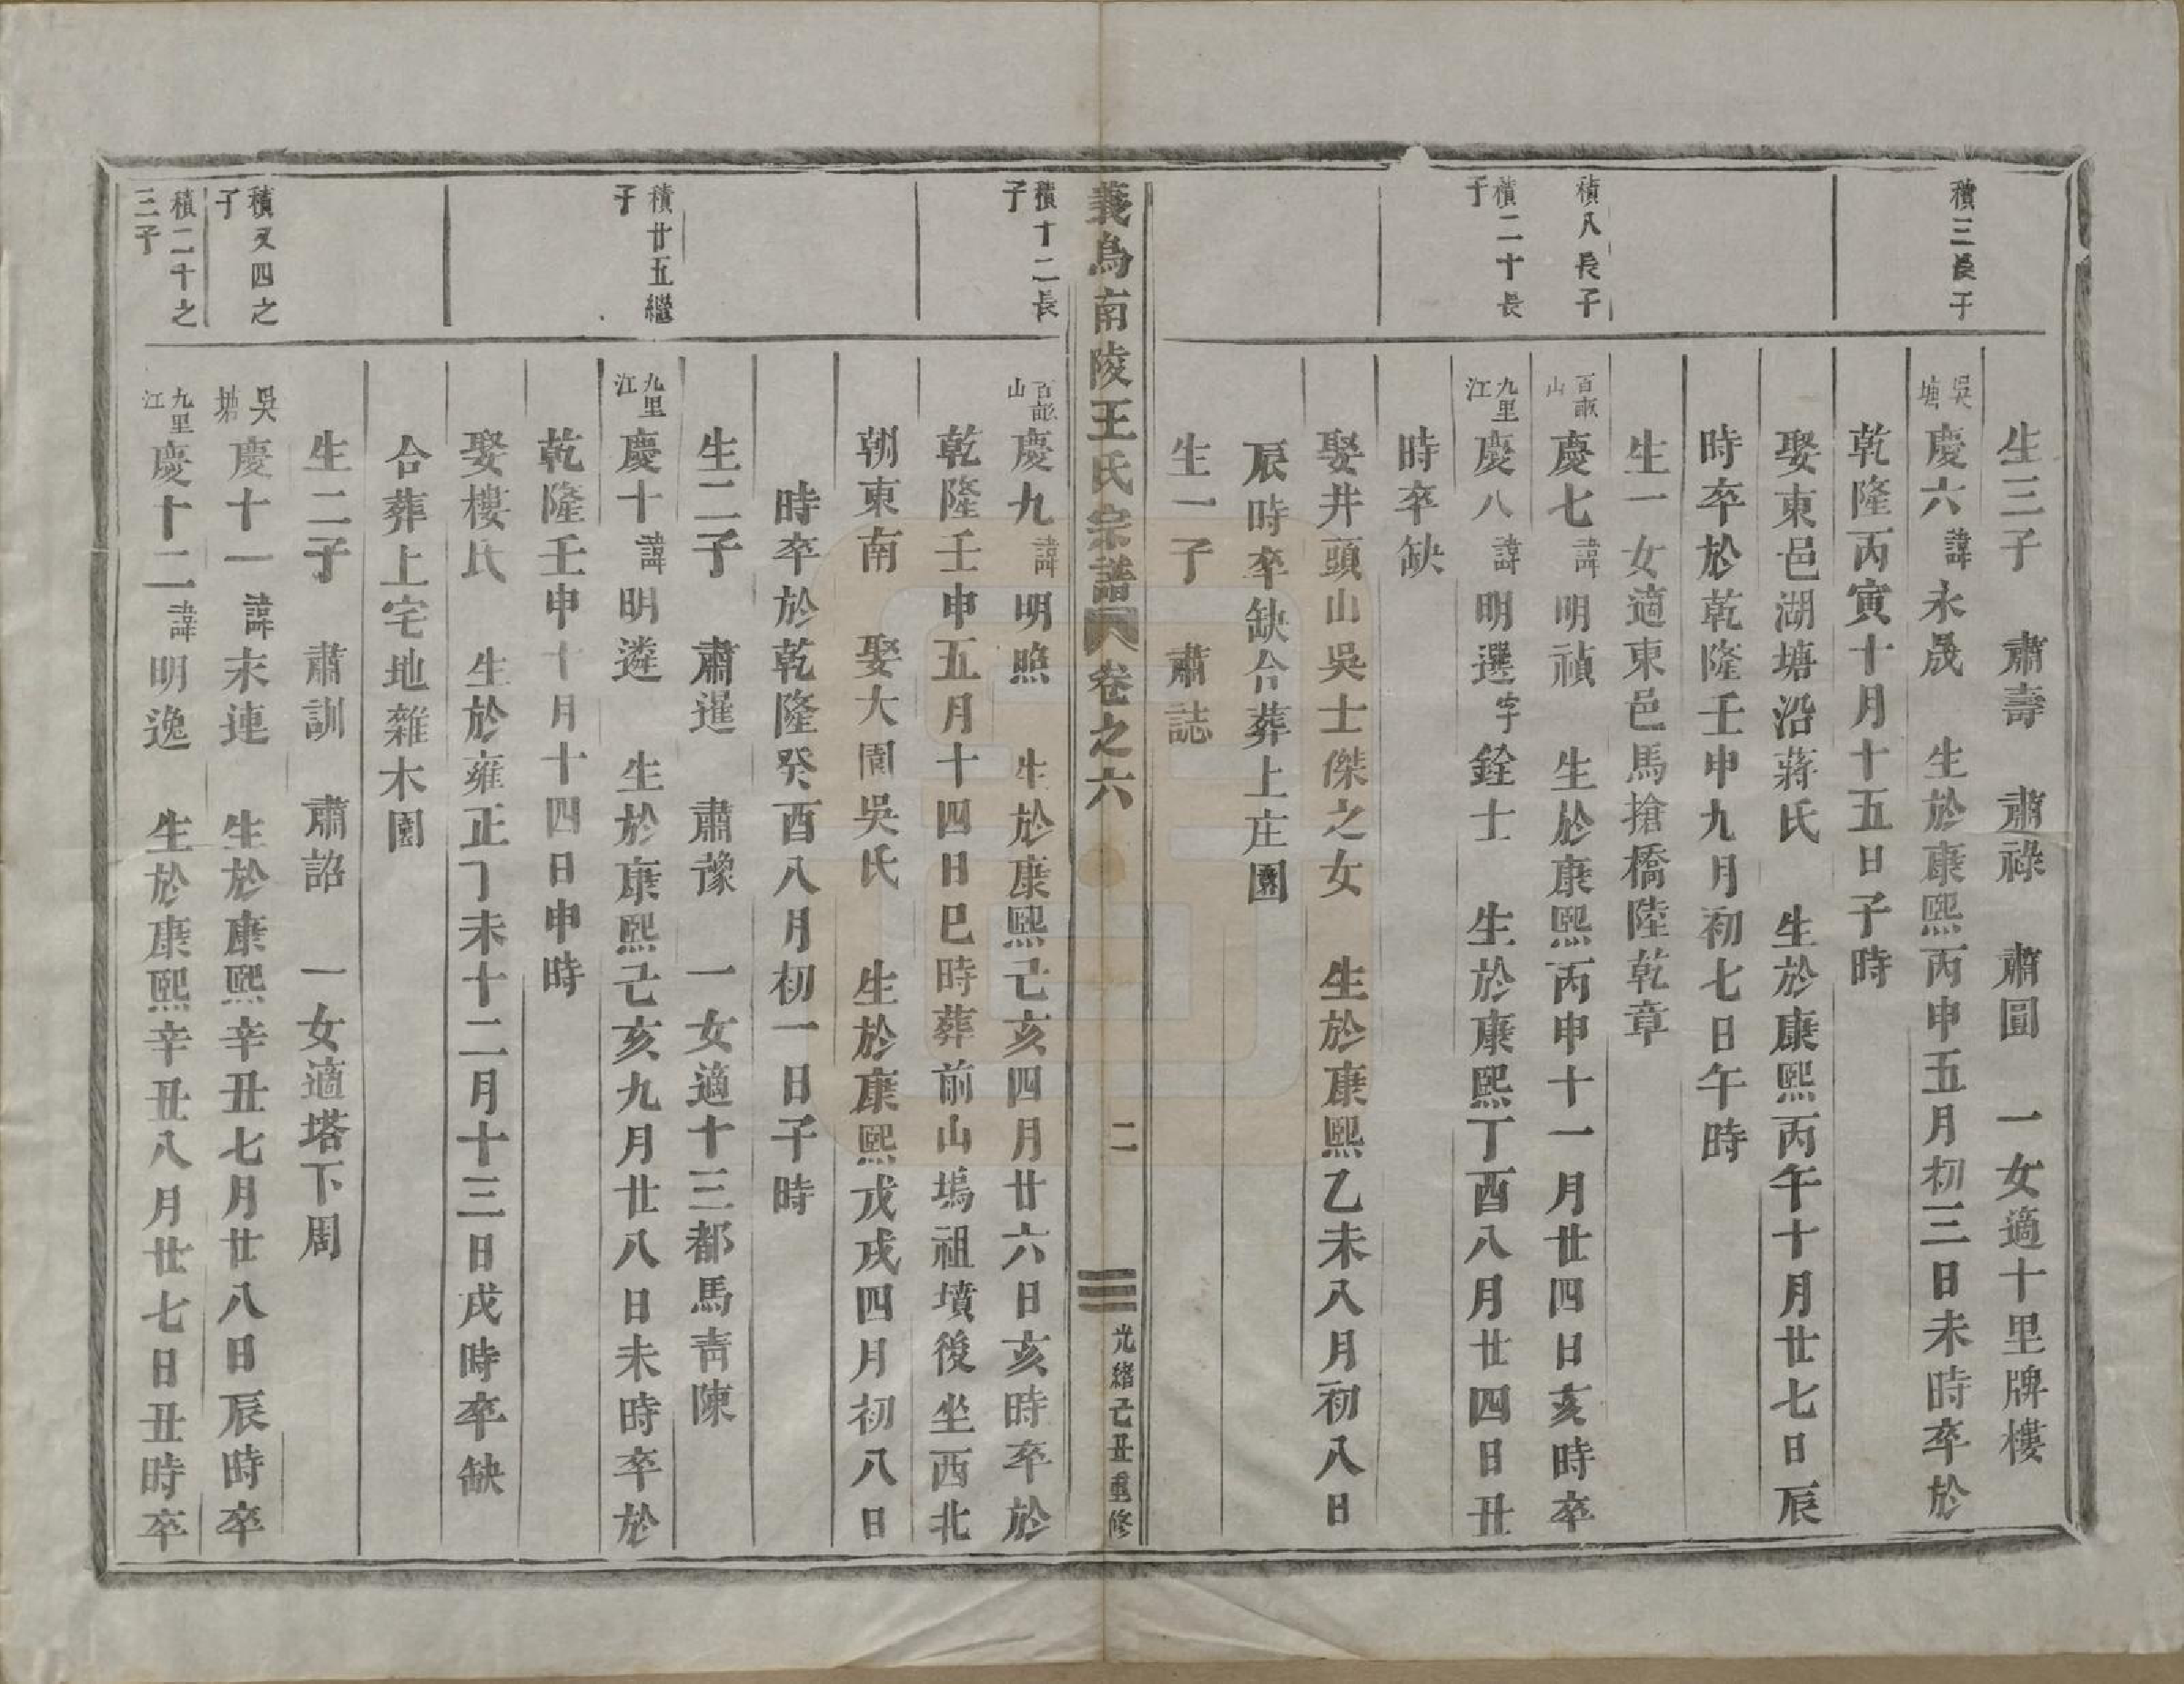 生三子　肅壽　肅祿　肅圓　一女適十里牌樓
積三長子
吳塘慶六諱永晟　生於康熙丙申五月初三日未時卒於
乾隆丙寅十月十五日子時
娶東邑湖塘沿蔣氏　生於康熙丙午十月廿七日辰
時卒於乾隆壬申九月初七日午時
生一女適東邑馬搶橋陸乾章
積八長子
百畝山慶七諱明禎　生於康熙丙申十一月廿四日亥時卒
積二十長子
九里江慶八諱明選字銓士　生於康熙丁酉八月廿四日丑
時卒缺
娶井頭山吳士傑之女　生於康熙乙未八月初八日
辰時卒缺合葬上庄園
生一子　肅誌
義烏南陵王氏宗譜　卷之六　二　光緒己丑重修
積十二長子
百畝山慶九諱明照　生於康熙己亥四月廿六日亥時卒於
乾隆壬申五月十四日巳時葬前山塢祖墳後坐西北
朝東南　娶大園吳氏　生於康熙戊戌四月初八日
時卒於乾隆癸酉八月初一日子時
生二子　肅暹　肅豫　一女適十三都馬青陳
積廿五繼子
九里江慶十諱明遴　生於康熙己亥九月廿八日未時卒於
乾隆壬申十月十四日申時
娶樓氏　生於雍正丁未十二月十三日戌時卒缺
合葬上宅地雜木園
生二子　肅訓　肅詔　一女適塔下周
積又四之子
吳塘慶十一諱末連　生於康熙辛丑七月廿八日辰時卒
積二十之三子
九里江慶十二諱明逸　生於康熙辛丑八月廿七日丑時卒